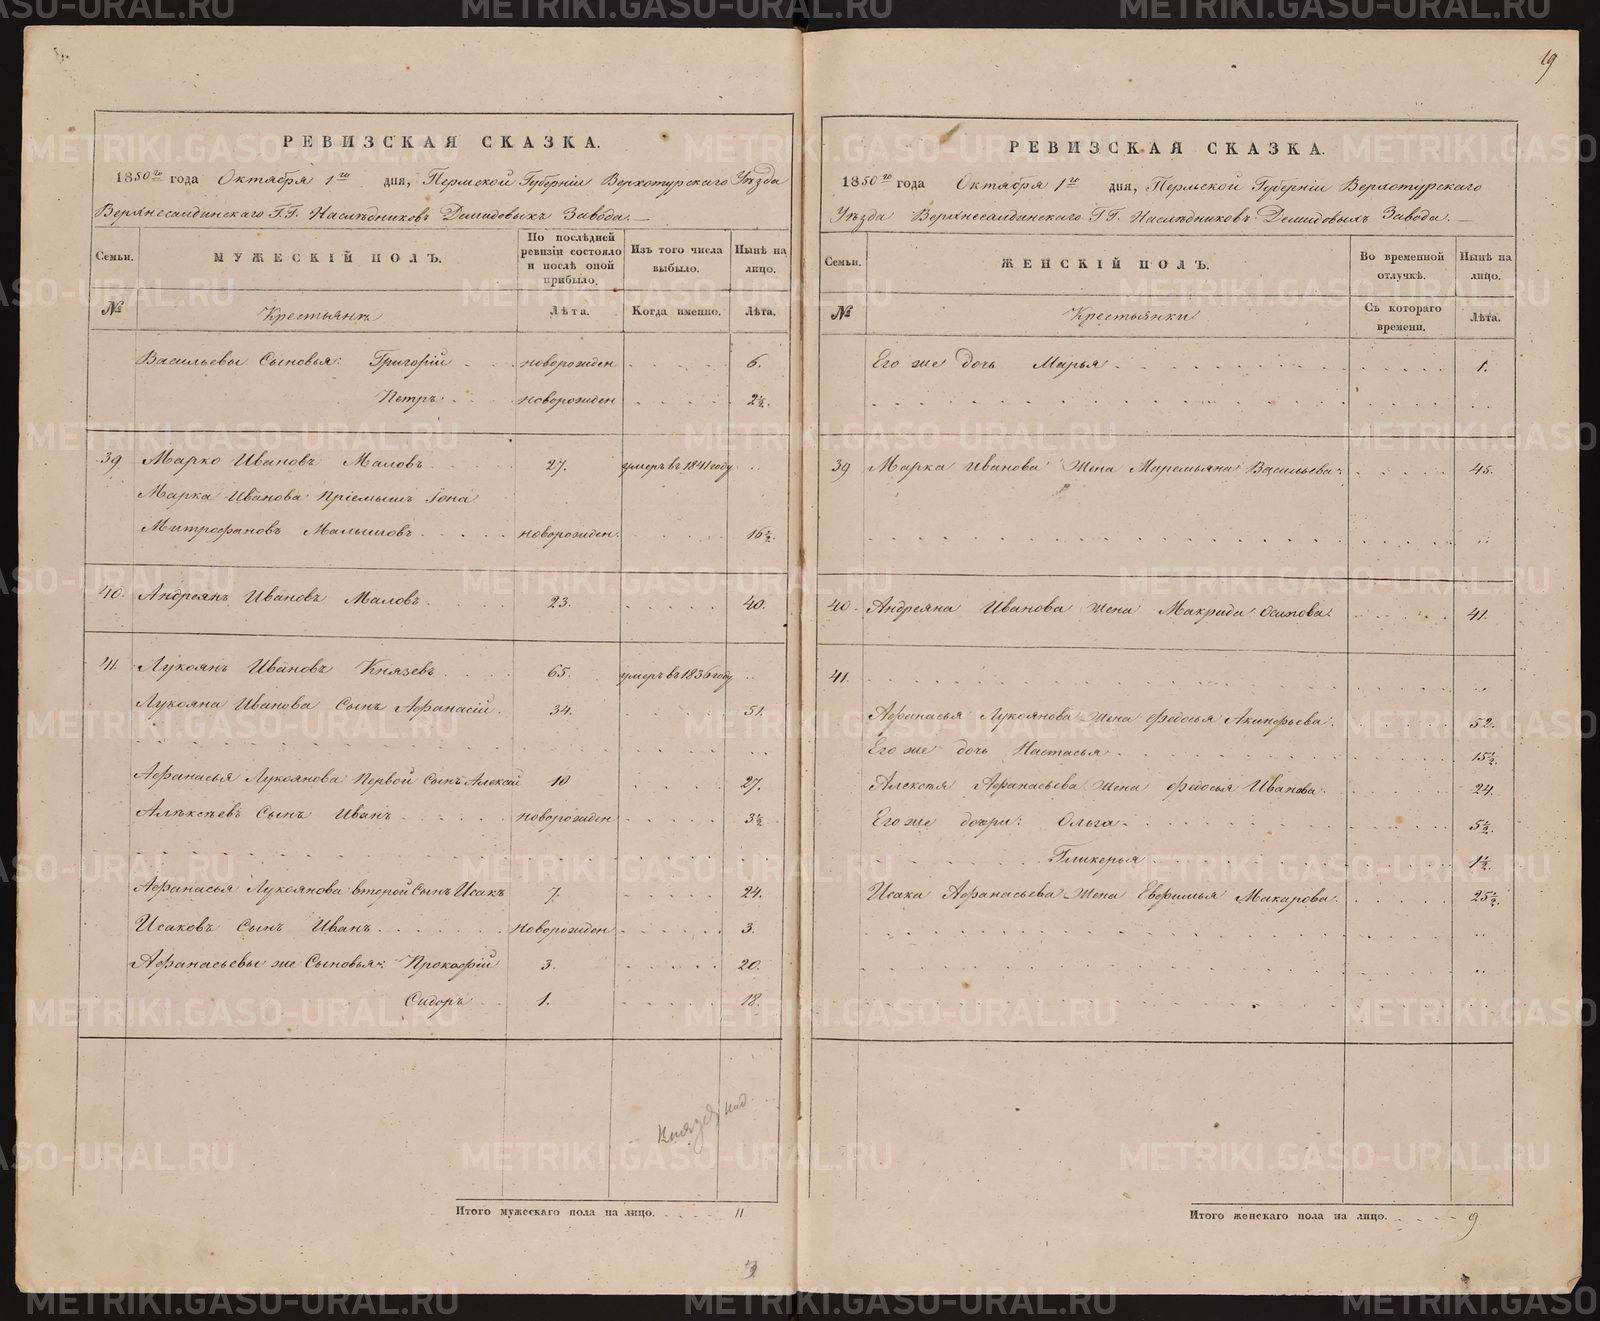 19
РЕВИЗСКАЯ СКАЗКА.
1850го года Октября 1го дня, Пермской Губерніи Верхотурскаго Уѣзда
Верхнесалдинскаго Г.Г. Наслѣдниковъ Демидовыхъ Завода.
Семьи. МУЖЕСКІЙ ПОЛЪ. По послѣдней ревизіи состояло и послѣ оной прибыло. Изъ того числа выбыло. Нынѣ на лицо.
№ Крестьянъ Лѣта. Когда именно. Лѣта.
Васильевы Сыновья: Григорій новорожден 6.
Петръ новорожден 2½.
39 Марко Ивановъ Маловъ 27. умеръ въ 1841 году
Марка Иванова Пріемышъ Іона
Митрофановъ Малышовъ новорожден. 16½.
40. Андреянъ Ивановъ Маловъ 23. 40.
41. Лукоянъ Ивановъ Князевъ 65. умеръ въ 1836 году
Лукояна Иванова Сынъ Афанасій 34. 51.
Афанасья Лукоянова Первой Сынъ Алексѣй 10 27.
Алексѣевъ Сынъ Иванъ новорожден 3½
Афанасья Лукоянова второй Сынъ Исакъ 7. 24.
Исаковъ Сынъ Иванъ новорожден 3.
Афанасьевы же Сыновья: Прокофій 3. 20.
Сидоръ 1. 18.
Итого мужескаго пола на лицо. 11
РЕВИЗСКАЯ СКАЗКА.
1850го года Октября 1го дня, Пермской Губерніи Верхотурскаго
Уѣзда Верхнесалдинскаго Г.Г. Наслѣдниковъ Демидовыхъ Завода.
Семьи. ЖЕНСКІЙ ПОЛЪ. Во временной отлучкѣ. Нынѣ на лицо.
№ Крестьянки Съ котораго времени. Лѣта.
Его же дочь Марья 1.
39 Марка Иванова Жена Маремьяна Васильева 45.
40. Андреяна Иванова Жена Макрида Осипова 41.
41.
Афанасья Лукоянова Жена Федосья Акинфьева 52.
Его же дочь Настасья 15½.
Алексѣя Афанасьева Жена Федосья Иванова 24.
Его же дочри: Ольга 5½.
Гликерья 1½.
Исака Афанасьева Жена Евфимья Макарова 25½.
Итого женскаго пола на лицо. 9
METRIKI.GASO-URAL.RU